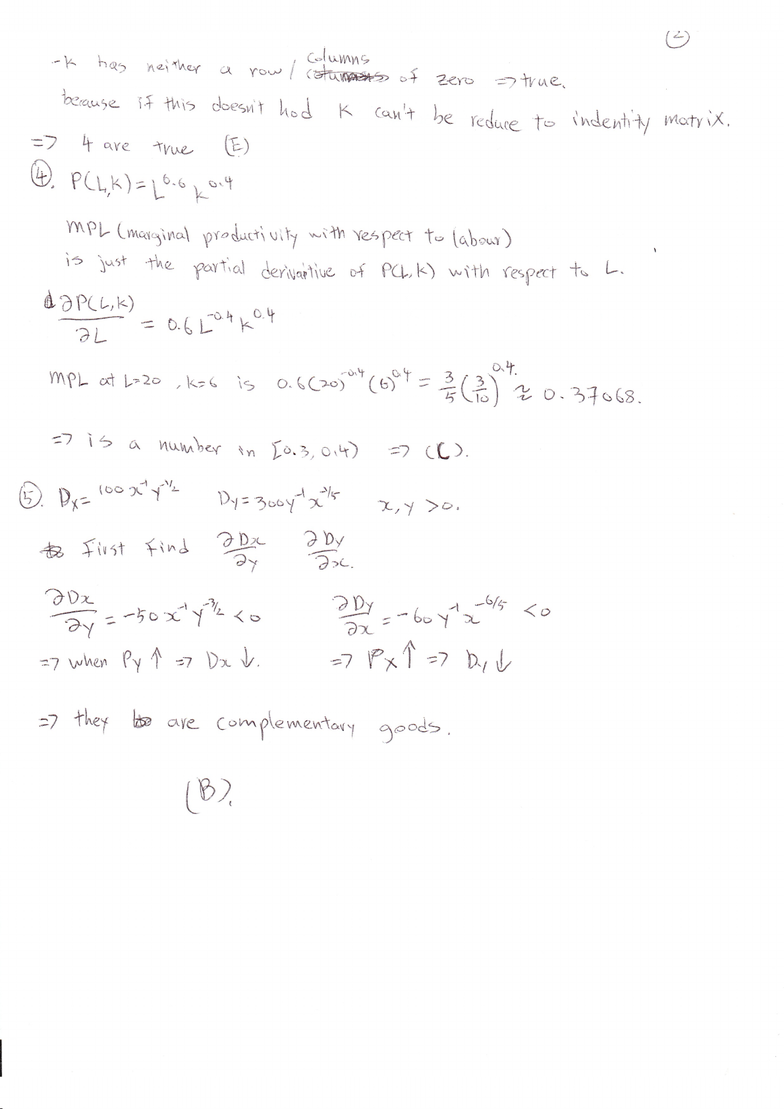 (2)
-K has neither a row/columns of zero => true.
because if this doesn't hod K can't be reduce to indentity matrix.
=> 4 are true (E)
④. P(L,K) = L^0.6 K^0.4
MPL (marginal productivity with respect to labour)
is just the partial derivative of P(L,K) with respect to L.
∂P(L,K)/∂L = 0.6 L^-0.4 K^0.4
MPL at L=20, K=6 is 0.6(20)^-0.4 (6)^0.4 = 3/5 (3/10)^0.4 ≈ 0.37068.
=> is a number in [0.3, 0.4) => (C).
⑤. Dx = 100 x^-1 y^-1/2 Dy = 300 y^-1 x^-1/5 x, y > 0.
First find ∂Dx/∂y ∂Dy/∂x.
∂Dx/∂y = -50 x^-1 y^-3/2 < 0 ∂Dy/∂x = -60 y^-1 x^-6/5 < 0
=> when Py ↑ => Dx ↓. => Px ↑ => Dy ↓
=> they are complementary goods.
(B).